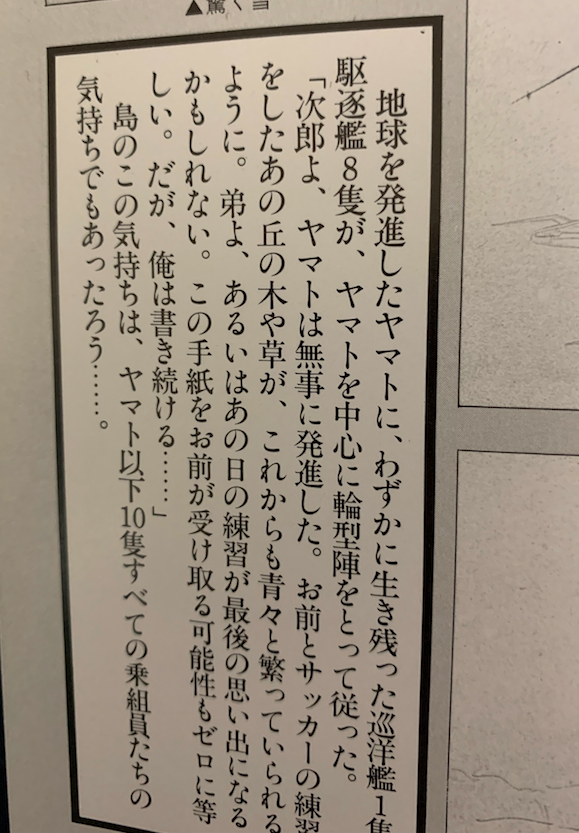 ▲驚く雪
地球を発進したヤマトに、わずかに生き残った巡洋艦1隻
駆逐艦8隻が、ヤマトを中心に輪型陣をとって従った。
「次郎よ、ヤマトは無事に発進した。お前とサッカーの練習
をしたあの丘の木や草が、これからも青々と繁っていられる
ように。弟よ、あるいはあの日の練習が最後の思い出になる
かもしれない。この手紙をお前が受け取る可能性もゼロに等
しい。だが、俺は書き続ける……」
島のこの気持ちは、ヤマト以下10隻すべての乗組員たちの
気持ちでもあったろう……。